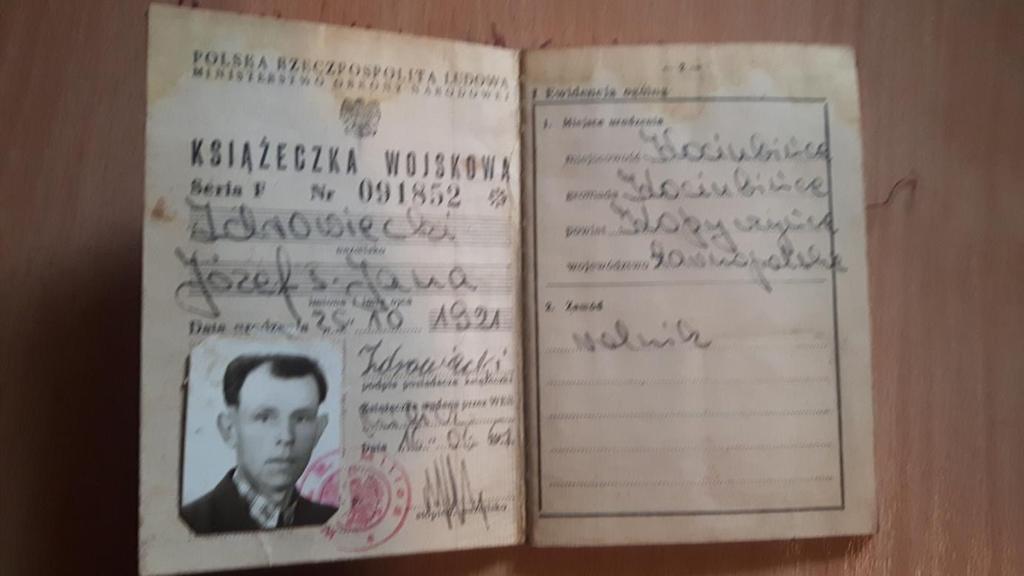 POLSKA RZECZPOSPOLITA LUDOWA
MINISTERSTWO OBRONY NARODOWEJ
KSIĄŻECZKA WOJSKOWA
Seria F Nr 091852
Zdrowięcki
nazwisko
Józef s. Jana
imiona i imię ojca
Data urodzenia "25" 10 1921
podpis posiadacza książeczki
Książeczka wydana przez WKR
Data 16. 06
— 2 —
I Ewidencja ogólna
1. Miejsce urodzenia
miejscowość Kociubińce
gromada Kociubińce
powiat
województwo tarnopolskie
2. Zawód
rolnik